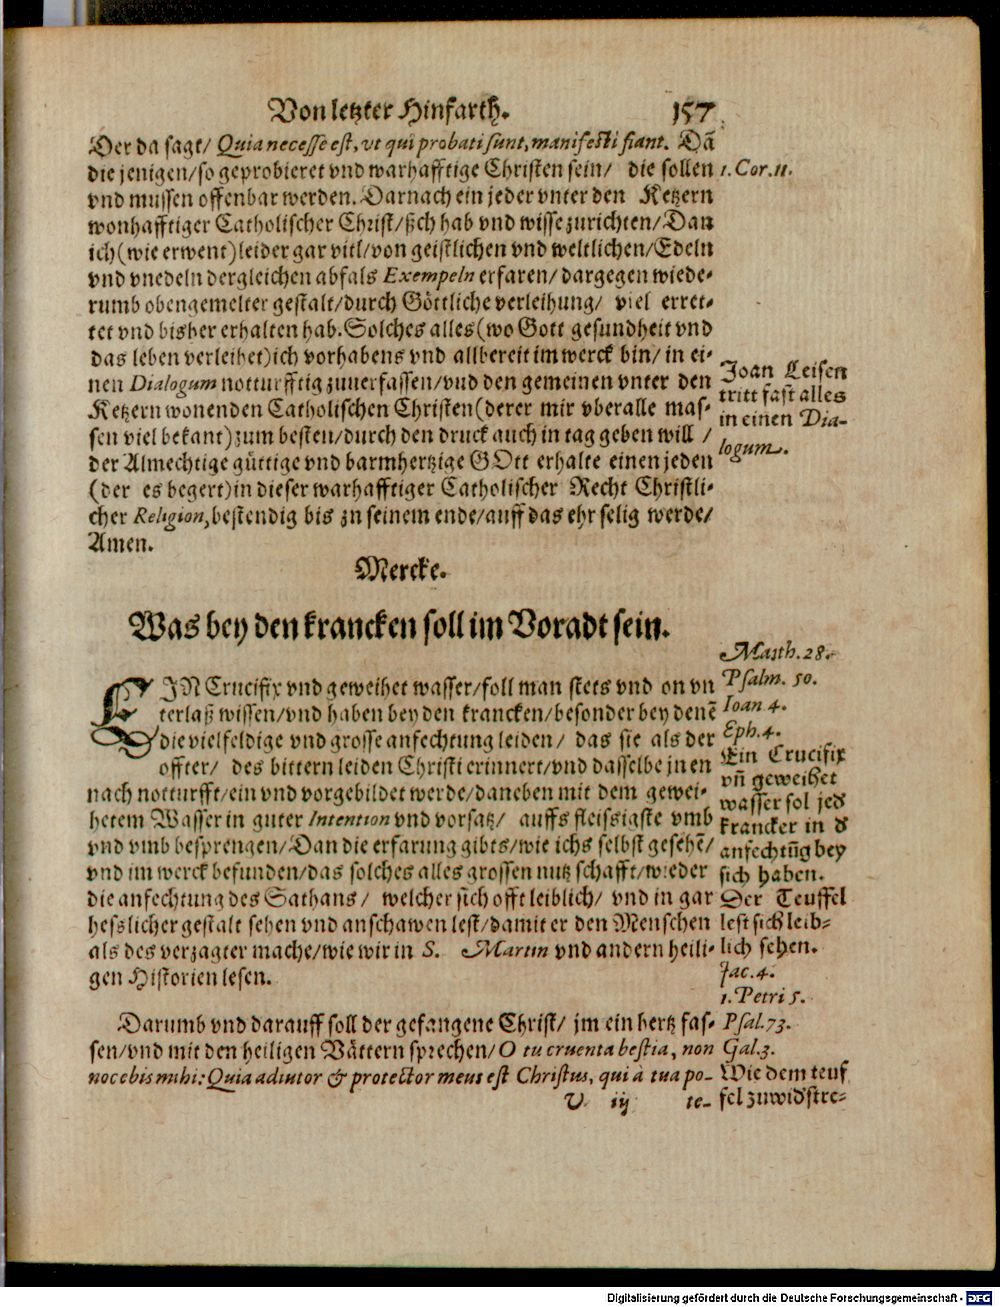 Von letzter Hinfarth. 157
Der da sagt/ Quia necesse est, vt qui probati sunt, manifesti fiant. Dã
die jenigen/ so geprobieret vnd warhafftige Christen sein/ die sollen
1. Cor. 11.
vnd mussen offenbar werden. Darnach ein jeder vnter den Ketzern
wonhafftiger Catholischer Christ/ sich hab vnd wisse zurichten/ Dan
ich (wie erwent) leider gar vill/ von geistlichen vnd weltlichen/ Edeln
vnd vnedeln dergleichen abfals Exempeln erfaren/ dargegen wiede-
rumb obengemelter gestalt/ durch Göttliche verleihung/ viel erret-
tet vnd bisher erhalten hab. Solches alles (wo Gott gesundheit vnd
das leben verleihet) ich vorhabens vnd allbereit im werck bin/ in ei-
nen Dialogum notturfftig zuuerfassen/ vnd den gemeinen vnter den
Ketzern wonenden Catholischen Christen (derer mir vberalle mas-
sen viel bekant) zum besten/ durch den druck auch in tag geben will /
der Almechtige güttige vnd barmhertzige GOtt erhalte einen jeden
(der es begert) in dieser warhafftiger Catholischer Recht Christli-
cher Religion, bestendig bis zu seinem ende/ auff das ehr selig werde/
Amen.
Joan Leisen
tritt fast alles
in einen Dia-
logum.
Mercke.
Was bey den krancken soll im Voradt sein.
EIN Crucifix vnd geweihet wasser/ soll man stets vnd on vn
terlaß wissen/ vnd haben bey den krancken/ besonder bey denẽ
die vielfeldige vnd grosse anfechtung leiden/ das sie als der
offter/ des bittern leiden Christi erinnert/ vnd dasselbe jnen
nach notturfft/ ein vnd vorgebildet werde/ daneben mit dem gewei-
hetem Wasser in guter Intention vnd vorsatz/ auffs fleissigste vmb
vnd vmb besprengen/ Dan die erfarung gibts/ wie ichs selbst gesehẽ/
vnd im werck befunden/ das solches alles grossen nutz schafft/ wieder
die anfechtung des Sathans/ welcher sich offt leiblich/ vnd in gar
hesslicher gestalt sehen vnd anschawen lest/ damit er den Menschen
als des verzagter mache/ wie wir in S. Martin vnd andern heili-
gen Historien lesen.
Matth. 28.
Psalm. 50.
Ioan 4.
Eph. 4.
Ein Crucifix
vñ geweihet
wasser sol jed̃
krancker in d̃
anfechtũg bey
sich haben.
Der Teuffel
lest sich leib-
lich sehen.
Jac. 4.
1. Petri 5.
Darumb vnd darauff soll der gefangene Christ/ jm ein hertz fas-
sen/ vnd mit den heiligen Vättern sprechen/ O tu cruenta bestia, non
nocebis mihi: Quia adiutor & protector meus est Christus, qui à tua po-
Psal. 73.
Gal. 3.
Wie dem teuf
fel zuwid̃stre-
V iij te-
Digitalisierung gefördert durch die Deutsche Forschungsgemeinschaft - DFG